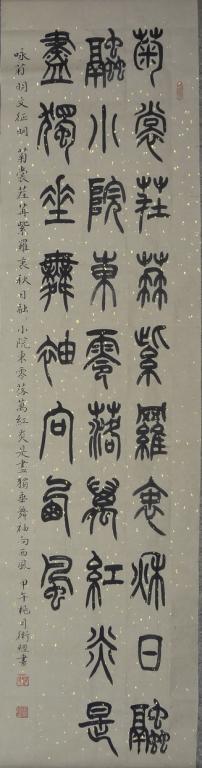 菊裳荏苒紫羅衷秋日融
融小院東零落萬紅炎是
盡獨垂舞袖向西風
咏菊 明文征明 菊裳荏苒紫羅衷秋日融〻小院東零落萬紅炎是盡獨垂舞袖向西風 甲午桃月衛書